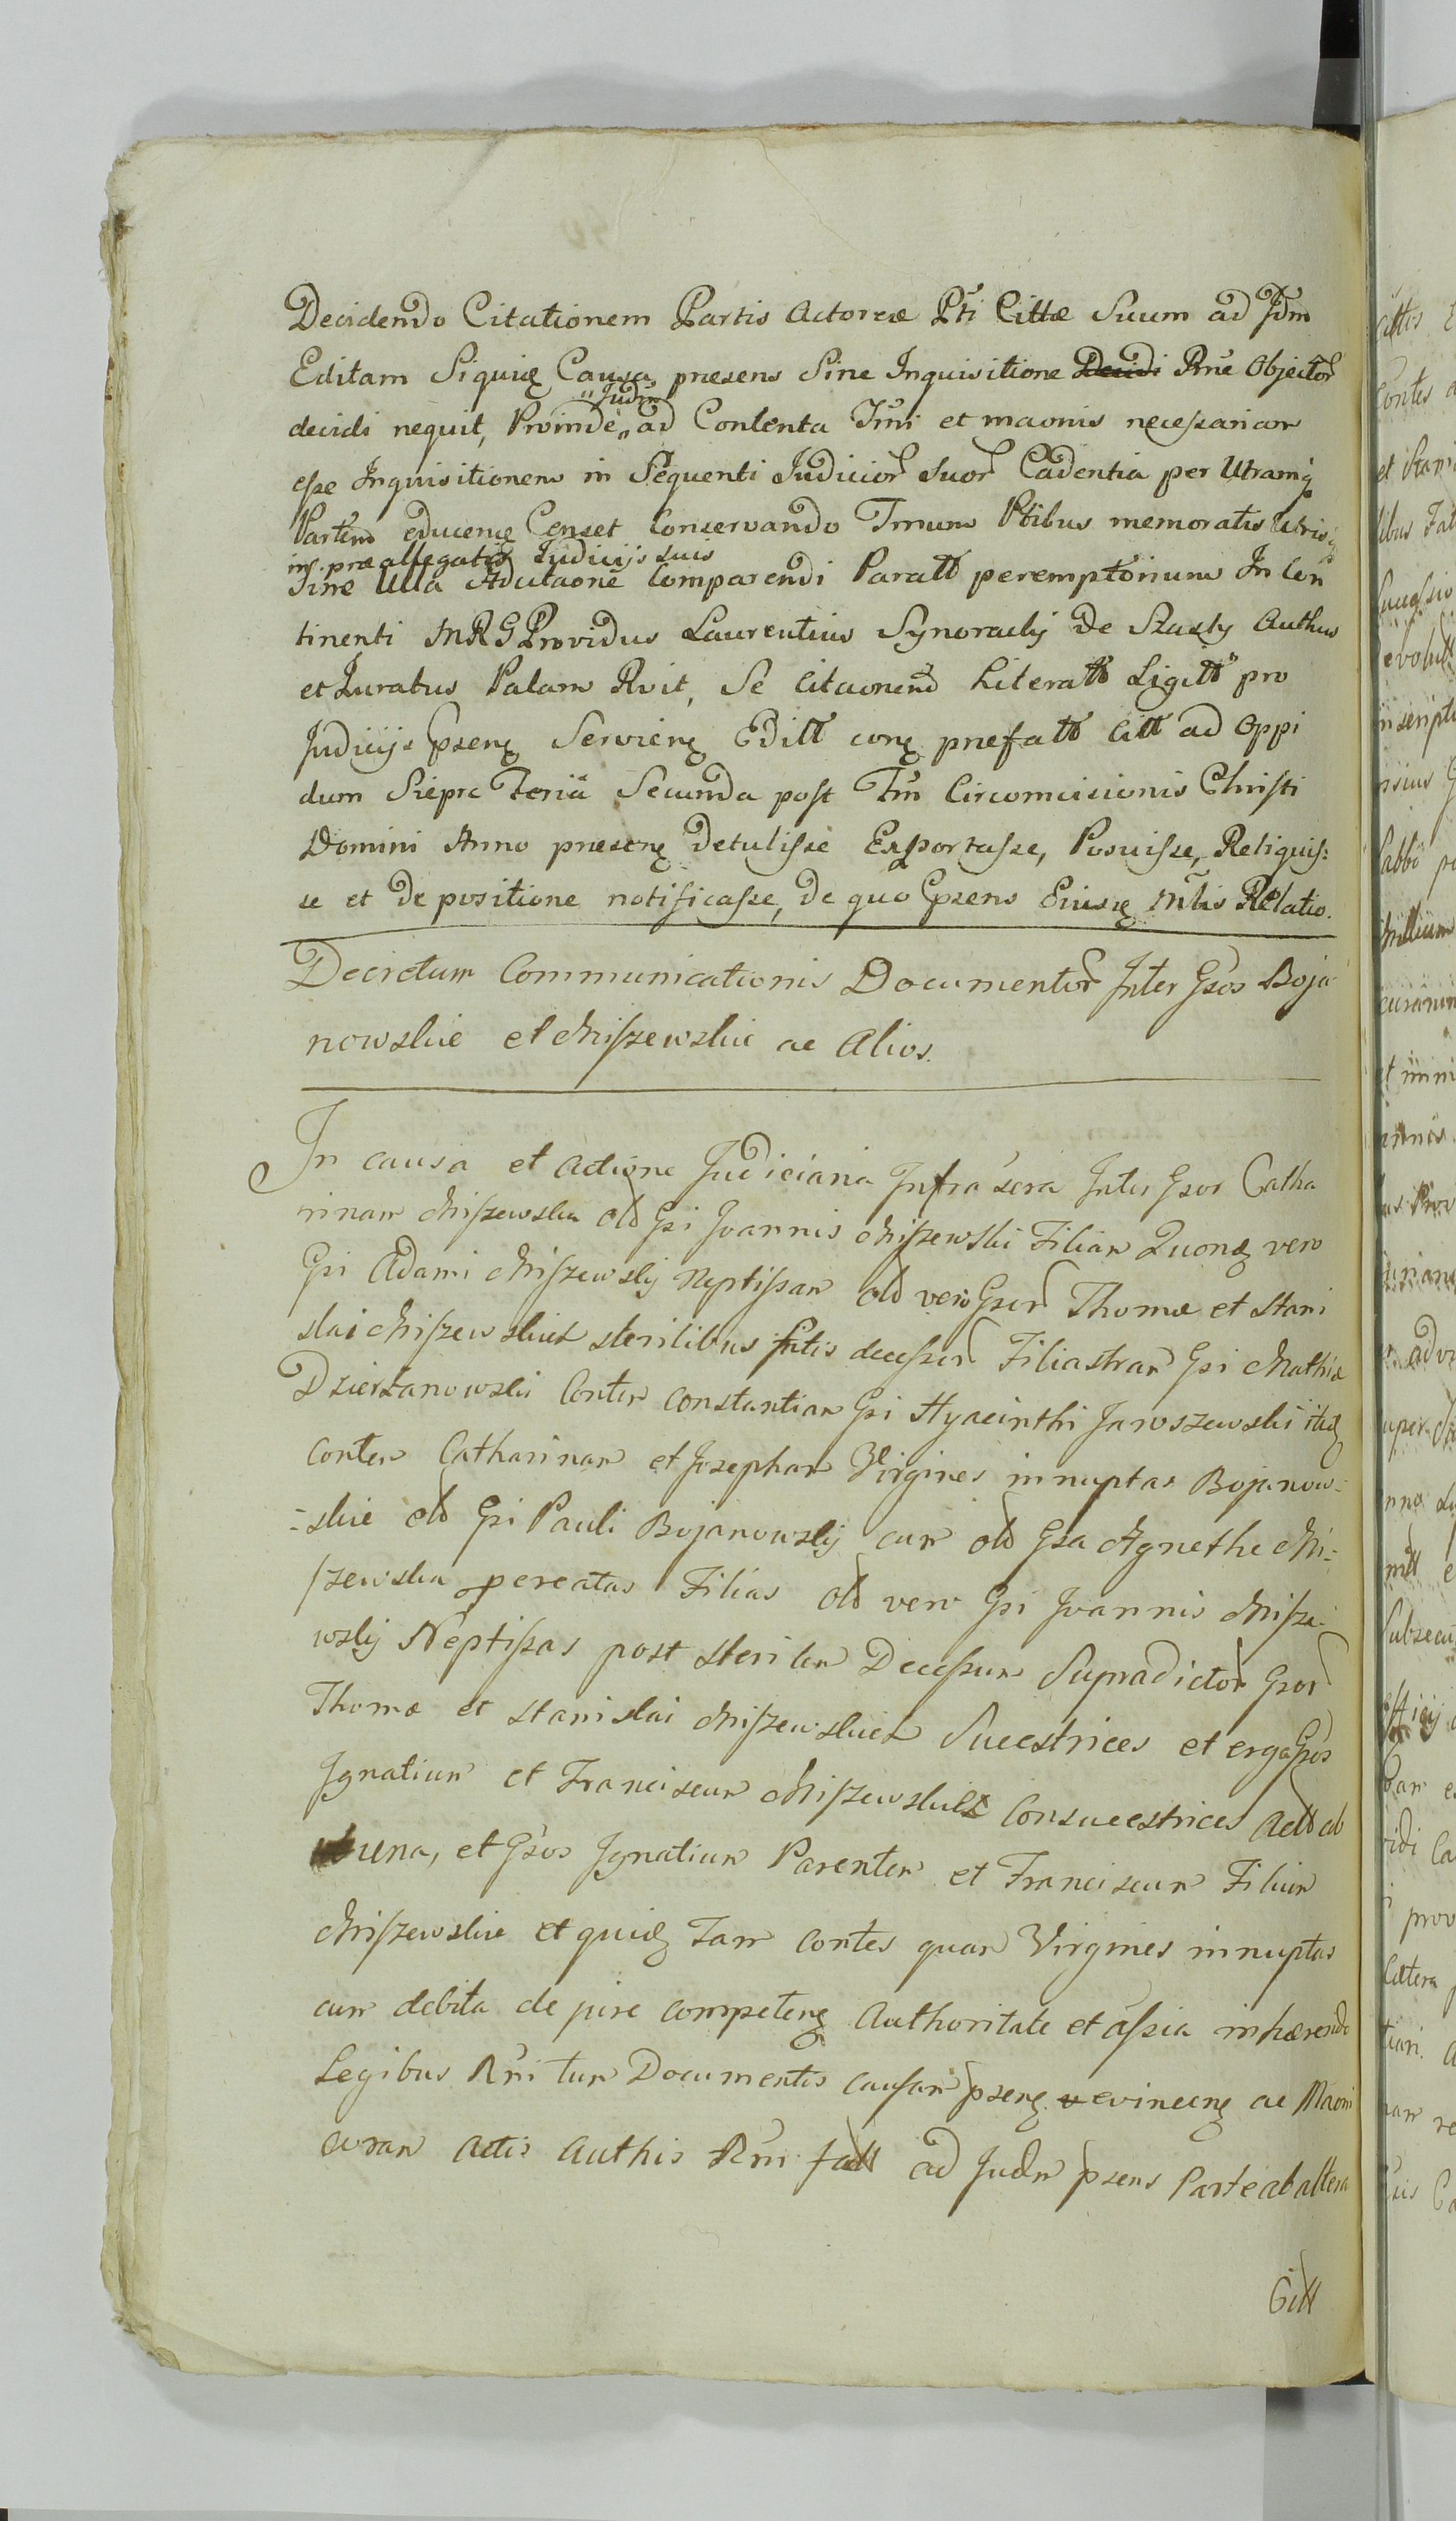 Decidendo Citationem Partis Actoreæ Pti Cittæ Suum ad Jdm
Editam Siquię Causa presens Sine Inquisitione Decidi Rñe Objector
"Judm
decidi nequit, Proinde "ad Contenta Trni et maonis necessariam
esse Inquisitionem in Sequenti Judicior suor Cadentia per Utramq
Partem educenę Censet Conservando Trnum Ptibus memoratis Utrisq
in præallegatis Judicijs suis
Sine Ulla Adcitaone Comparendi Paratt peremptorium In Con
tinenti MRG Providus Laurentius Synoracky De Szasty Authus
et Juratus Palam Rvit, Se Citaonem Literatt Sigitt pro
Judicijs Epsenę Servienę Editt conę prefatt Citt ad Oppi
dum Siepre Feria Secunda post Fm Circomcisionis Christi
Domini Anno presenę Detulisse Exportasse, Posuisse, Reliquis:
se et De positione notificasse, De quo Epsens Eiusę Mlis Relatio.
Decretum Communicationis Documentor Inter Gsos Boja
nowskie et Miszewskie ac Alios.
In causa et actione Judiciaria Infra sera Inter Gsos Catha
rinam Miszewska old Gsi Joannis Miszewski Filiam Quonę vero
Gsi Adami Miszewsky Neptissam old vero Gsor Thomæ et Stani
slai Miszewskich sterilibus fatis decessor Filiastram Gsi Mathiæ
Dzierżanowski Contem Constantiam Gsi Hyacinthi Jaroszewski itidę
Contem Catharinam et Josepham Virgines innuptas Bojanow-
-skie old Gsi Pauli Bojanowsky cum old Gsa Agnethe Mi-
szewska pereatas Filias old vero Gsi Joannis Misze-
wsky Neptissas post sterilem Decessum Supradictor Gsor
Thomæ et Stanislai Miszewskich Sucestrices et erga Gsos
Ignatium et Franciscum Miszewskich Consucestrices Actt ab
una, et Gsos Ignatium Parentem et Franciscum Filium
Miszewskie et quidę Tam Contes quam Virgines innuptas
cum debita de jure competenę Authoritate et assia inhærendo
Legibus Rñi tum Documentis causam psenę evincenę ac Maoni
coram Actis Authis Rñi fatt ad Judm psens Parte ab altera
Citt